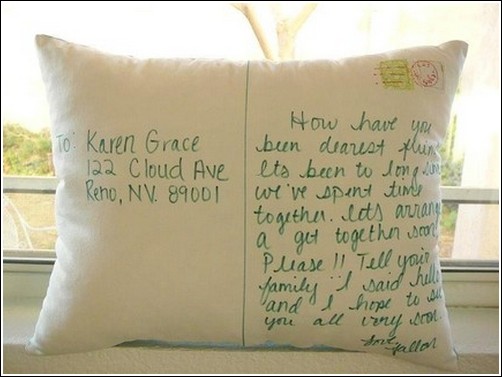 To: Karen Grace
122 Cloud Ave
Reno, NV. 89001
How have you
been dearest
Its been to long
we've spent time
together. lets
a get together soon
Please!! Tell your
family I said hello
and I hope to see
you all very soon.
Love,
Fallon